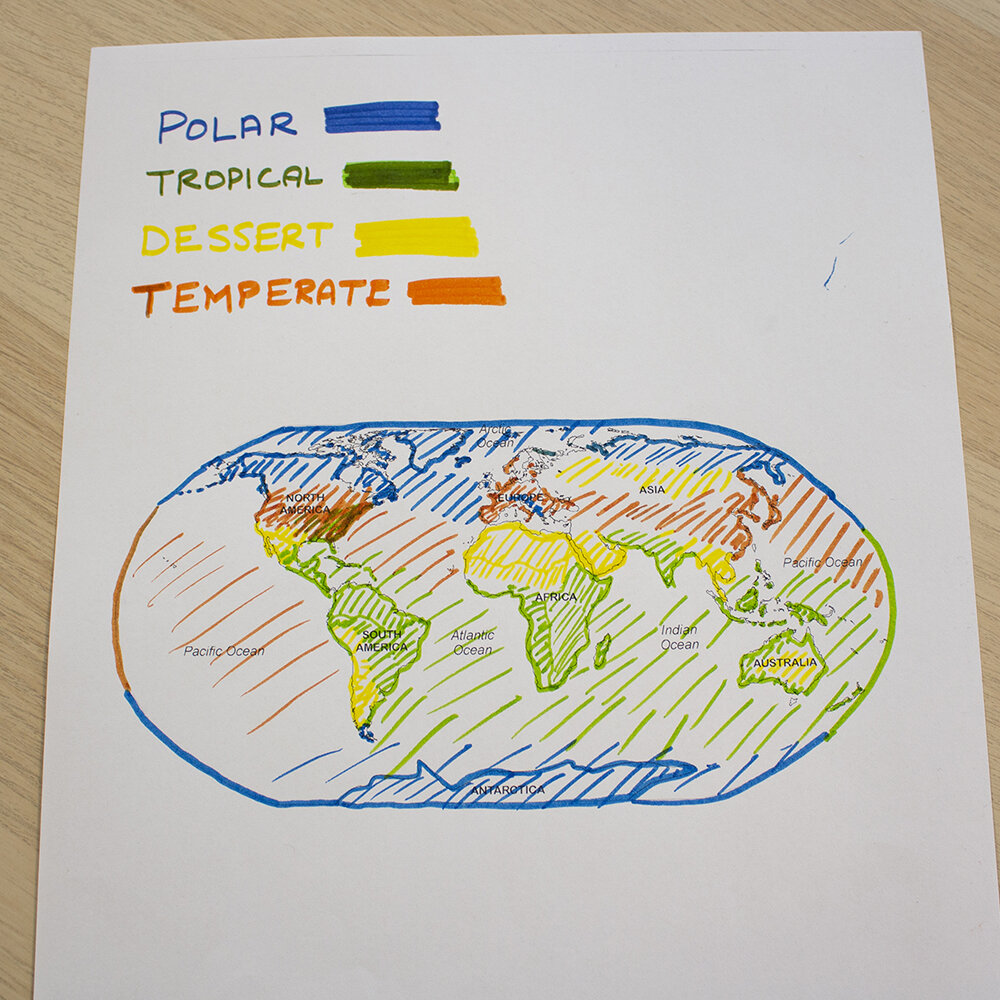 POLAR
TROPICAL
DESSERT
TEMPERATE
Arctic
Ocean
NORTH
AMERICA
EUROPE
ASIA
Pacific Ocean
AFRICA
SOUTH
AMERICA
Atlantic
Ocean
Indian
Ocean
Pacific Ocean
AUSTRALIA
ANTARCTICA